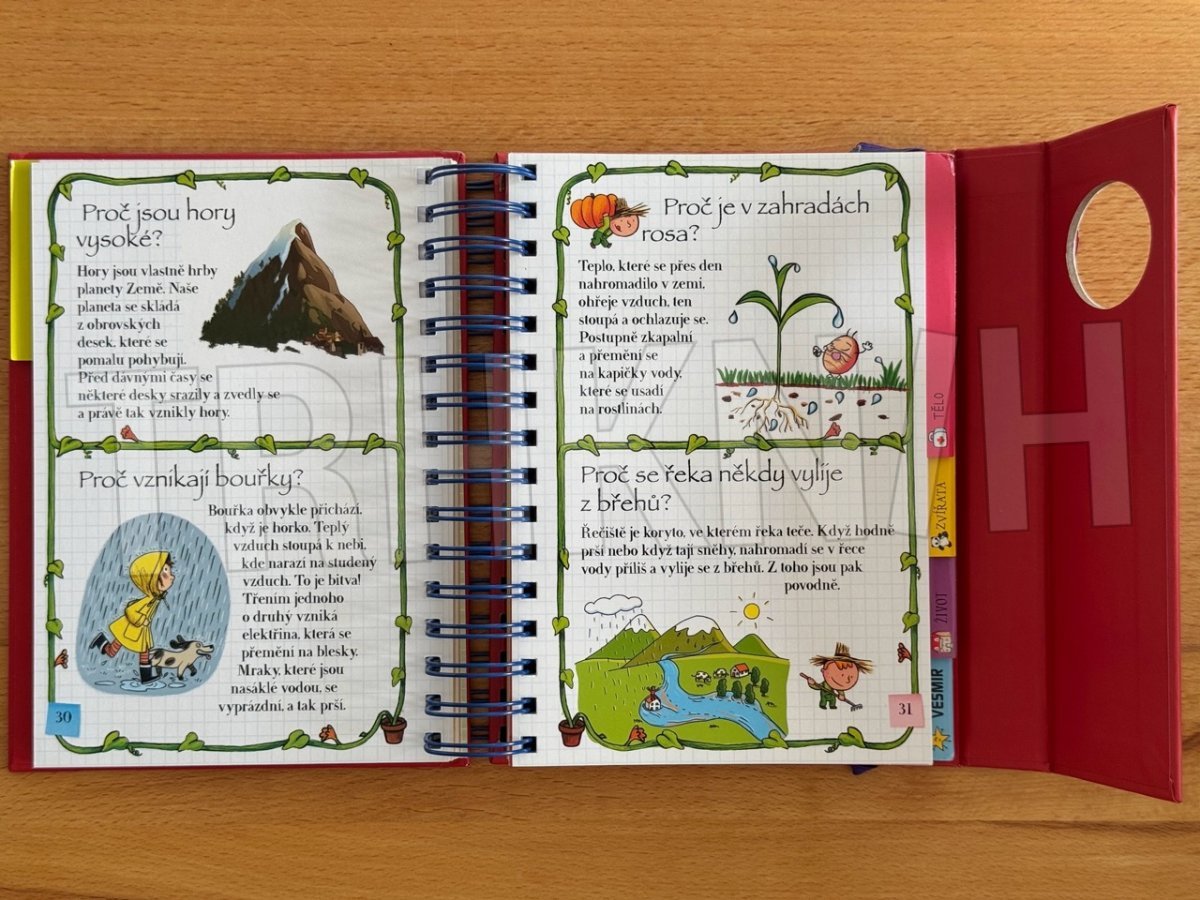 Proč jsou hory
vysoké?
Hory jsou vlastně hrby
planety Země. Naše
planeta se skládá
z obrovských
desek, které se
pomalu pohybují.
Před dávnými časy se
některé desky srazily a zvedly se
a právě tak vznikly hory.
Proč vznikají bouřky?
Bouřka obvykle přichází,
když je horko. Teplý
vzduch stoupá k nebi,
kde narazí na studený
vzduch. To je bitva!
Třením jednoho
o druhý vzniká
elektřina, která se
přemění na blesky.
Mraky, které jsou
nasáklé vodou, se
vyprázdní, a tak prší.
30
Proč je v zahradách
rosa?
Teplo, které se přes den
nahromadilo v zemi,
ohřeje vzduch, ten
stoupá a ochlazuje se.
Postupně zkapalní
a přemění se
na kapičky vody,
které se usadí
na rostlinách.
Proč se řeka někdy vylije
z břehů?
Řečiště je koryto, ve kterém řeka teče. Když hodně
prší nebo když tají sněhy, nahromadí se v řece
vody příliš a vylije se z břehů. Z toho jsou pak
povodně.
31
TĚLO
ZVÍŘATA
ŽIVOT
VESMÍR